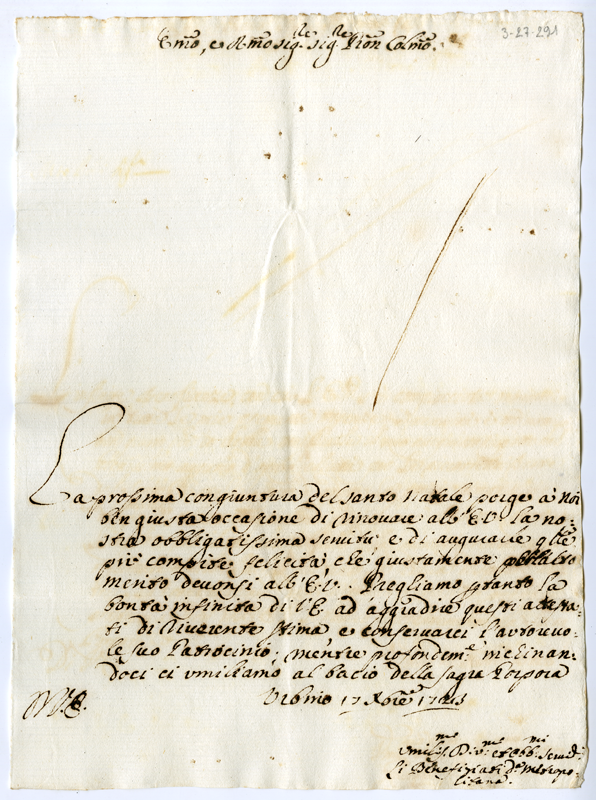 3-27-291
Emo, e Rmo Sig.re Sig.re Pron Colmo.
La prossima congiuntura del Santo Natale porge à noi
ben giusta occasione di rinovare all'E.V. la no=
stra obbligatissima servitù e di augurare q.lle
più compite felicità che giustamente per l'alto
merito devonsi all'E.V. Preghiamo pertanto la
bontà infinita di V.E. ad aggradire questi attesta=
ti di riverente stima e conservarci l'autorevo=
le suo Patrocinio; mentre profondem.te inchinan=
doci ci umiliamo al bacio della Sagra Porpora
Urbino 17 Xbre
V.E.
Umilis.mi D.mi et Obb.mi Servi.
li Beneficiati d.a Metropo=
litana.